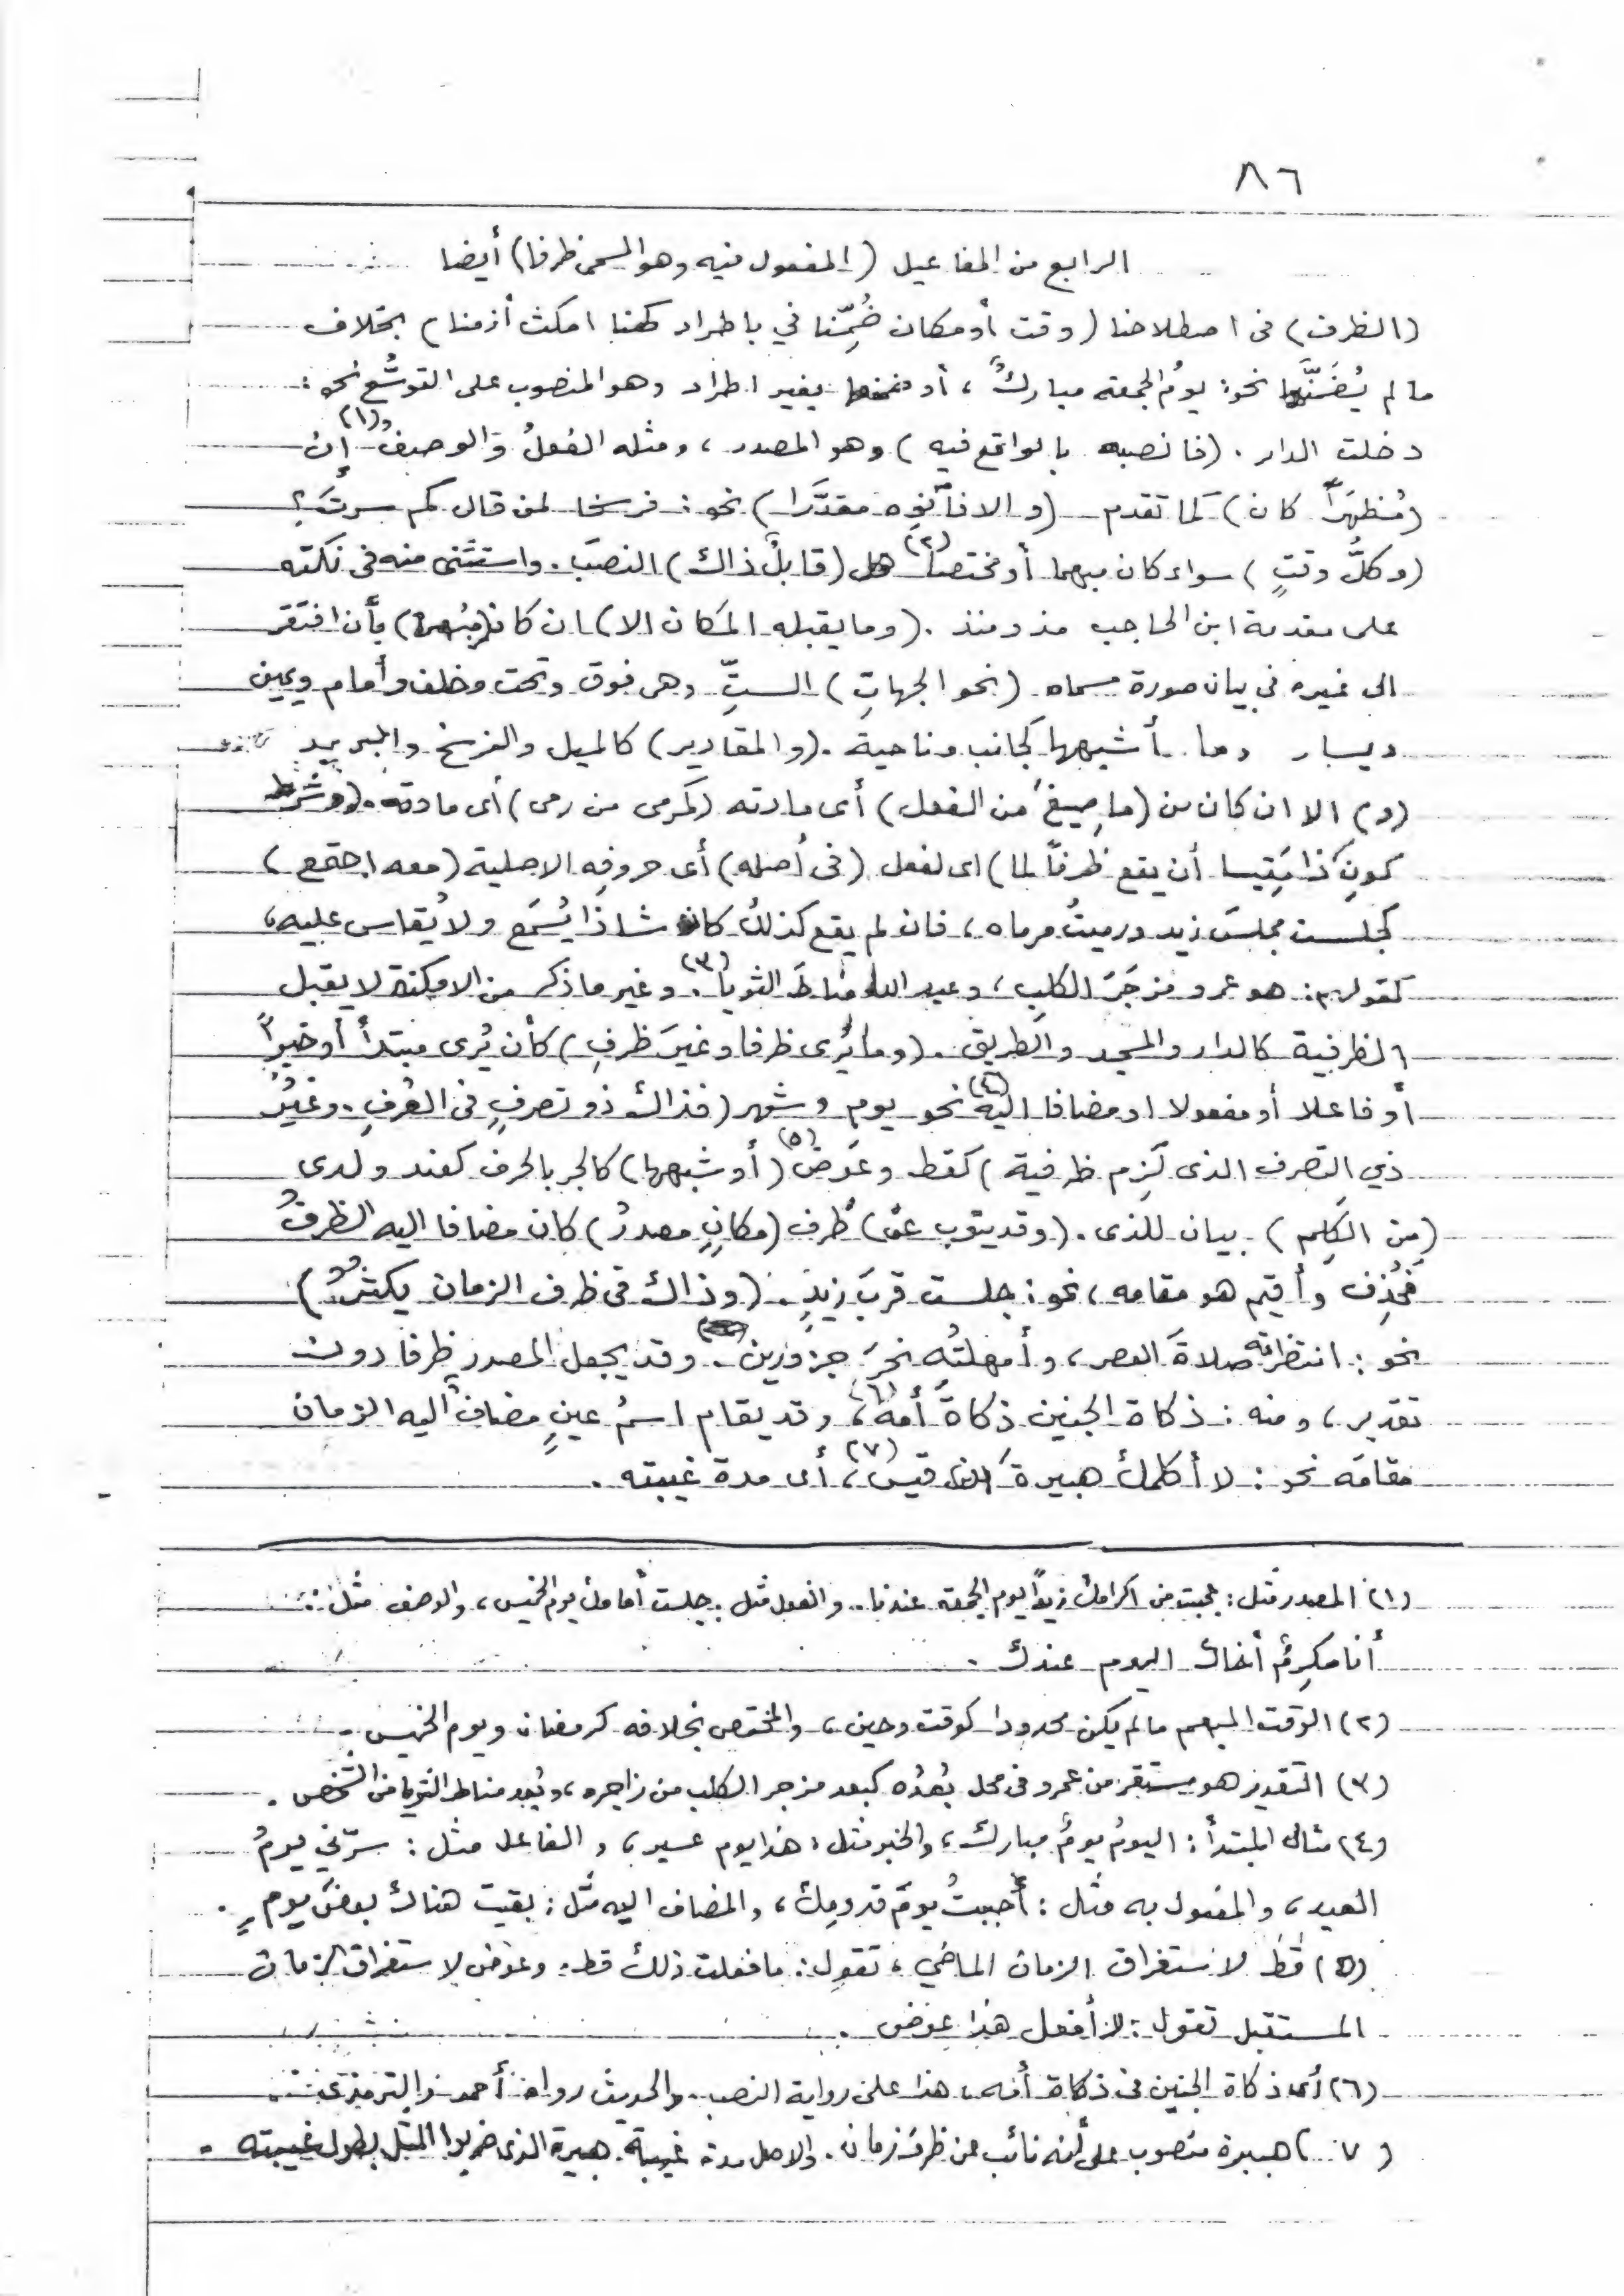 ٨٦
الرابع من المفاعيل (المفعول فيه وهو المسمى ظرفا) أيضا
(الظرف) فى اصطلاحنا (وقت أو مكان ضُمِّنا في باطراد كهنا امكث أزمنا) بخلاف
ما لم يُضَمَّنها نحو: يومُ الجمعة مباركٌ، أو ضمنها بغير اطراد وهو المنصوب على التوسُّع نحو:
دخلت الدار. (فانصبه بالواقع فيه) وهو المصدر، ومثله الفعلُ والوصفُ (١) إن
(مُظهَراً كان) كما تقدم (والا فانْوِه مقدَّرا) نحو: فرسخا لمن قال كم سرتَ؟
(وكلُّ وقتٍ) سواء كان مبهما أو مختصا (٢) (قابلٌ ذاك) النصبَ. واستثنى منه فى نكته
على مقدمة ابن الحاجب مذ ومنذ. (وما يقبله المكان الا) ان كان (مُبْهما) بأن افتقر
الى غيره في بيان صورة مسماه (نحو الجهاتِ) الستِّ وهى فوق وتحت وخلف وأمام ويمين
ويسار وما أشبهها كجانب وناحية. (والمقادير) كالميل والفرسخ والبريد
(و) الا ان كان من (ما صِيغَ من الفعل) أى مادته (كمرمى من رمى) أى مادته. (وشرط
كونِ ذا مَقِيسا أن يقع ظرفاً لما) اى لفعل (فى أصله) أى حروفِه الاصلية (معه اجتمع)
كجلست مجلسَ زيد ورميتُ مرماه، فان لم يقع كذلك كان شاذا يُسْمَع ولا يُقاس عليه،
كقولهم: هو عمرو مزجَرَ الكلبِ، وعبد الله مناطَ الثريا (٣). وغير ما ذكر من الامكنة لا يقبل
الظرفية كالدار والمسجد والطريق. (وما يُرى ظرفا وغيرَ ظرفِ) كأن يُرى مبتدأً أو خبراً
أو فاعلا أو مفعولا او مضافا اليه (٤) نحو يوم وشهر (فذاك ذو تصرفٍ فى العُرفِ. وغيرُ
ذي التصرف الذى لَزِم ظرفية) كقط وعَوضُ (٥) (أو شبهها) كالجر بالحرف كعند ولدى
(مِن الكَلِم) بيان للذى. (وقد ينوب عن) ظرف (مكانٍ مصدرُ) كان مضافا اليه الظرفُ
فحُذِف وأقيم هو مقامه، نحو: جلست قربَ زيدٍ. (وذاك فى ظرف الزمان يكثرُ)
نحو: انتظرته صلاةَ العصر، وأمهلتُه نحرَ جزورين. وقد يجعل المصدر ظرفا دون
تقدير، ومنه: ذكاة الجنين ذكاةَ أمه (٦)، وقد يقام اسمُ عينٍ مضافٌ اليه الزمان
مقامَه نحو: لا أكلمك هبيرةَ بن قيس (٧)، أى مدة غيبته.
(١) المصدر مثل: عجبت من اكرامك زيداً يوم الجمعة عندنا. والفعل مثل: جلست أمامك يوم الخميس، والوصف مثل:
أنا مكرِمٌ أخاك اليوم عندك.
(٢) الوقت المبهم ما لم يكن محدودا كوقت وحين، والمختص بخلافه كرمضان ويوم الخميس.
(٣) التقدير هو مستقر من عمرو فى محل بُعْدُه كبعد مزجر الكلب من زاجره، وبُعد مناط الثريا من الشخص.
(٤) مثال المبتدأ: اليومُ يومٌ مبارك، والخبر مثل: هذا يوم عسير، والفاعل مثل: سرّني يومُ
العيد، والمفعول به مثل: أحببتُ يومَ قدومِك، والمضاف اليه مثل: بقيت هناك بعضَ يومٍ.
(٥) قَطُّ لاستغراق الزمان الماضي، تقول: ما فعلت ذلك قط. وعوض لاستغراق الزمان
المستقبل تقول: لا أفعل هذا عوض.
(٦) أى ذكاة الجنين فى ذكاة أمه، هذا على رواية النصب. والحديث رواه أحمد والترمذى
(٧) هبيرة منصوب على أنه نائب عن ظرف زمان. والاصل مدة غيبة هبيرة الذى ضربوا المثل بطول غيبته.